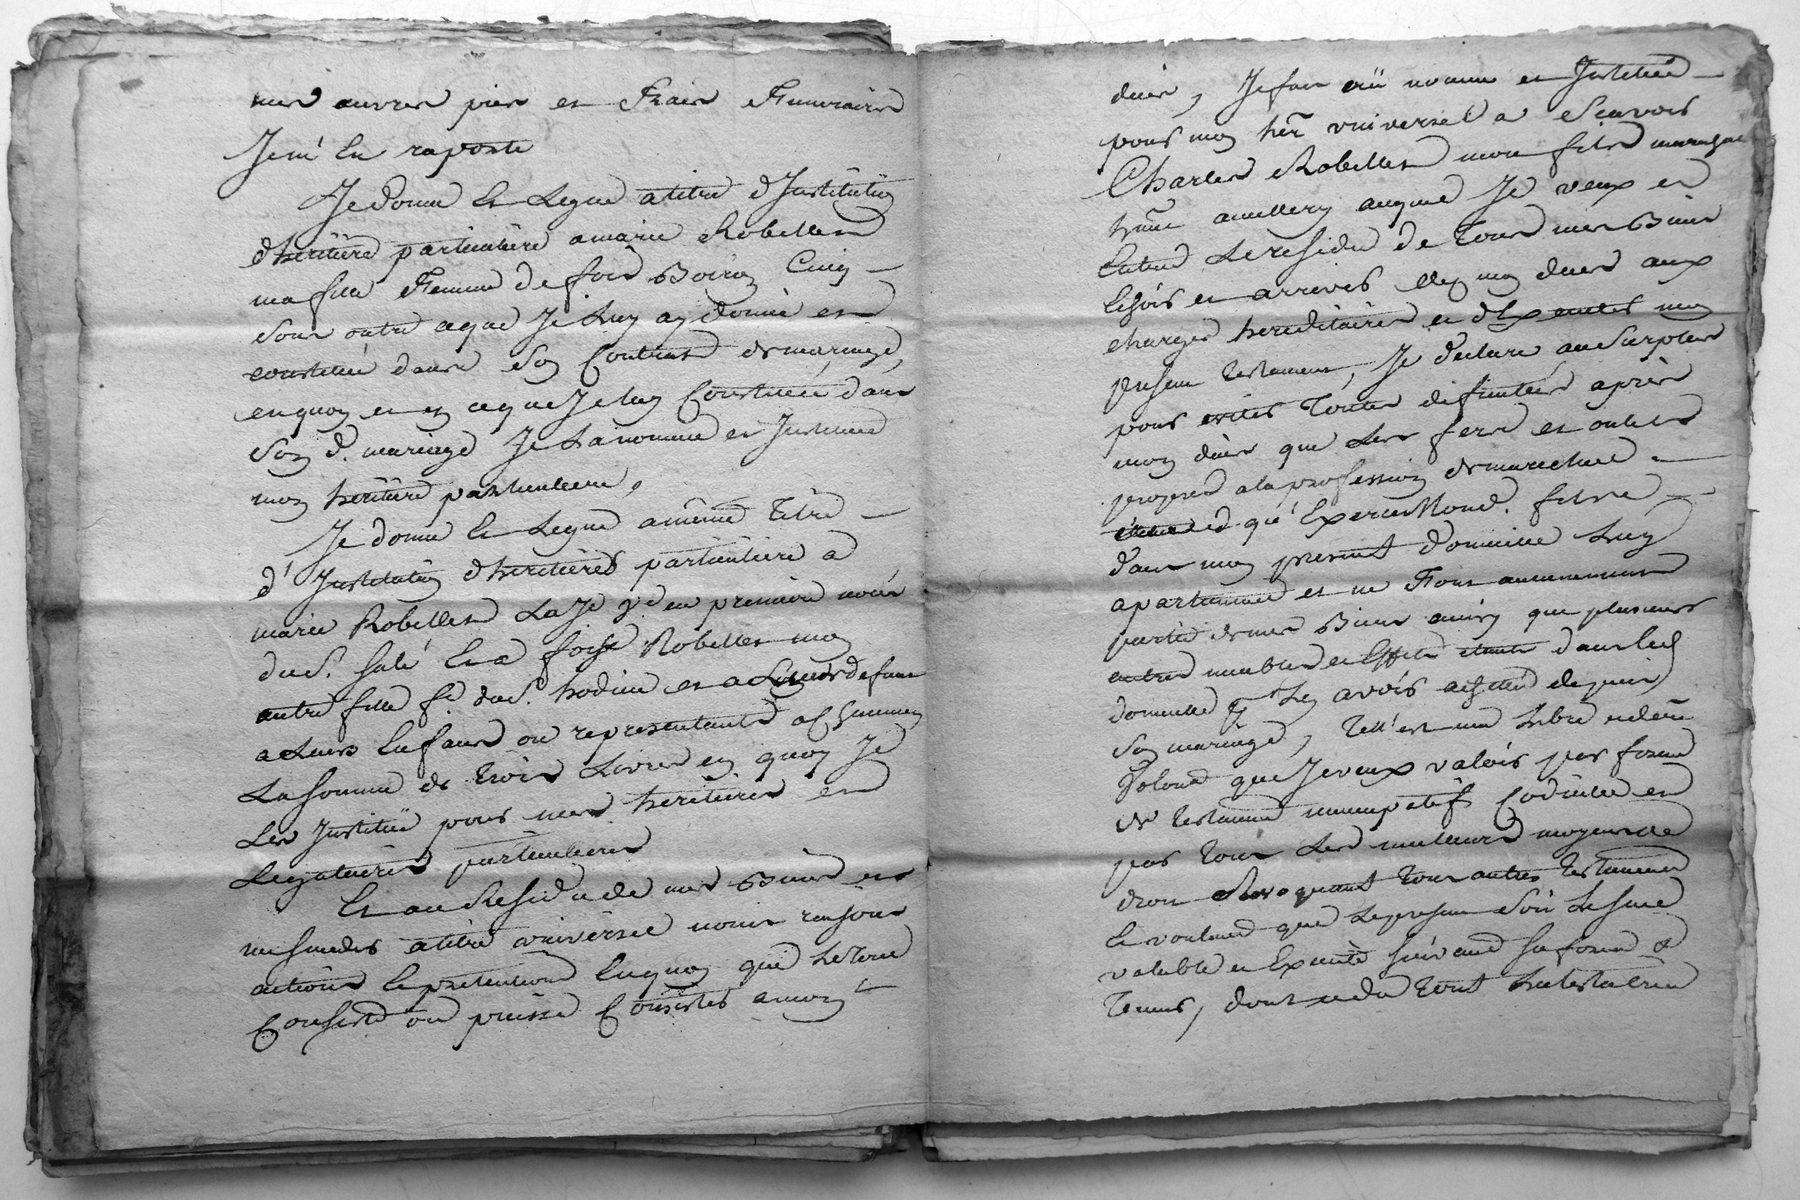 mes œuvres pies et Frais Funeraires
Je m'En raporte
Je donne Et Legue a titre d'Institution
d'heritiere particuliere a marie Robellet
ma fille Femme de fois Boiron Cinq
Sous outre ce que Je Luy ay donné et
constitué dans Son Contrat de mariage,
en quoy et en ce que Je luy Constitué dans
Son d. mariage Je La nomme et Institue
mon heritiere particuliere,
Je donne Et Legue a même Titre
d'Institution d'heritieres particuliere a
marie Robellet en premiere noces
du S. Et a foise Robellet mon
autre fille f. du S. hodieu et a Leurs defaut
a Leurs Enfans ou representants
La somme de trois Livres en quoy Je
Les Institue pour mes heritieres et
Legataires particulieres
Et au Residu de mes Biens et
a titre universel noms raisons
actions Et pretentions En quoy que Le tout
Consiste ou puisse Consister a mon
deces, Je fais crée nomme et Institue
pour mon her universel a Scavoir
Charles Robellet mon fils marechal
auquel Je veux et
Entend Le residu de Tous mes Biens
Echoir et arriver mon deces aux
charges hereditaires et d'Executer mon
present testament, Je declare au Surplus
pour eviter Toutes dificultés après
mon deces que Les fers et outils
propres a la profession de marechal
qu'Exerce Mond. fils
dans mon present domicille Luy
apartiennent et ne Font aucunement
partie de mes Biens ainsy que plusieurs
autres meubles et Effets etants dans led
domicille p. Les avoir achetté depuis
Son mariage, Tell'est ma Libre et dern
Volonté que Je veux valoir par forme
de testament nuncupatif Codicille et
par tous Les meilleurs moyens de
droit Revoquant tous autres testaments
Et voulant que Le present Soit Le Seul
valable et Executé suivant sa forme &
Teneur, dont et du tout Le testateur